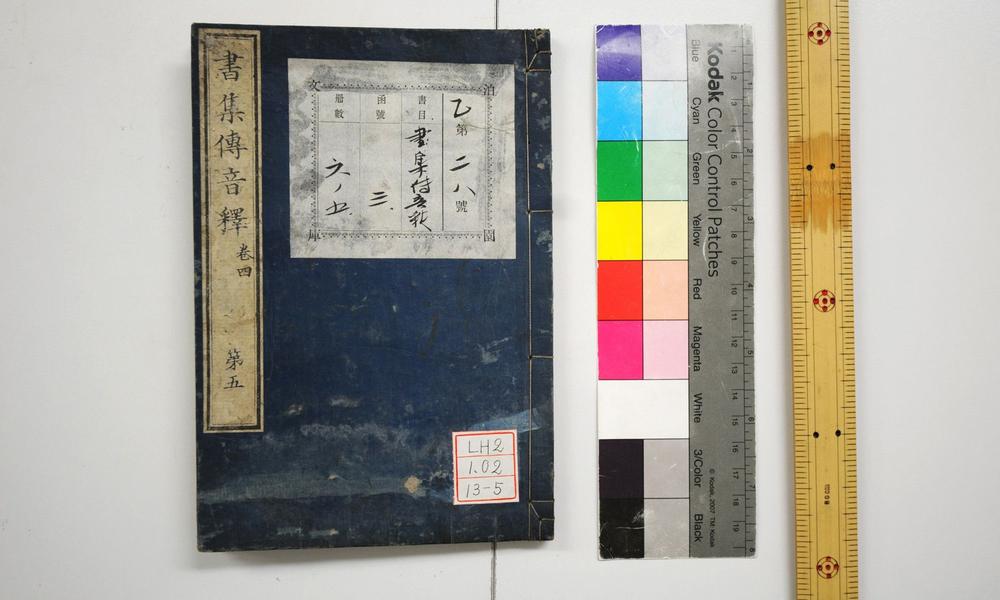 書集傳音釋 卷四
第五
泊園
文庫
乙第二八號
書目 書集傳音釈
函號 三
冊數 六ノ五
LH2
1.02
13-5
Kodak Color Control Patches
Blue
Cyan
Green
Yellow
Red
Magenta
White
3/Color
Black
© Kodak, 2007 TM: Kodak
1 2 3 4 5 6 7 8 9 10 11 12 13 14 15 16 17 18 19
1 2 3 4 5 6 7 8